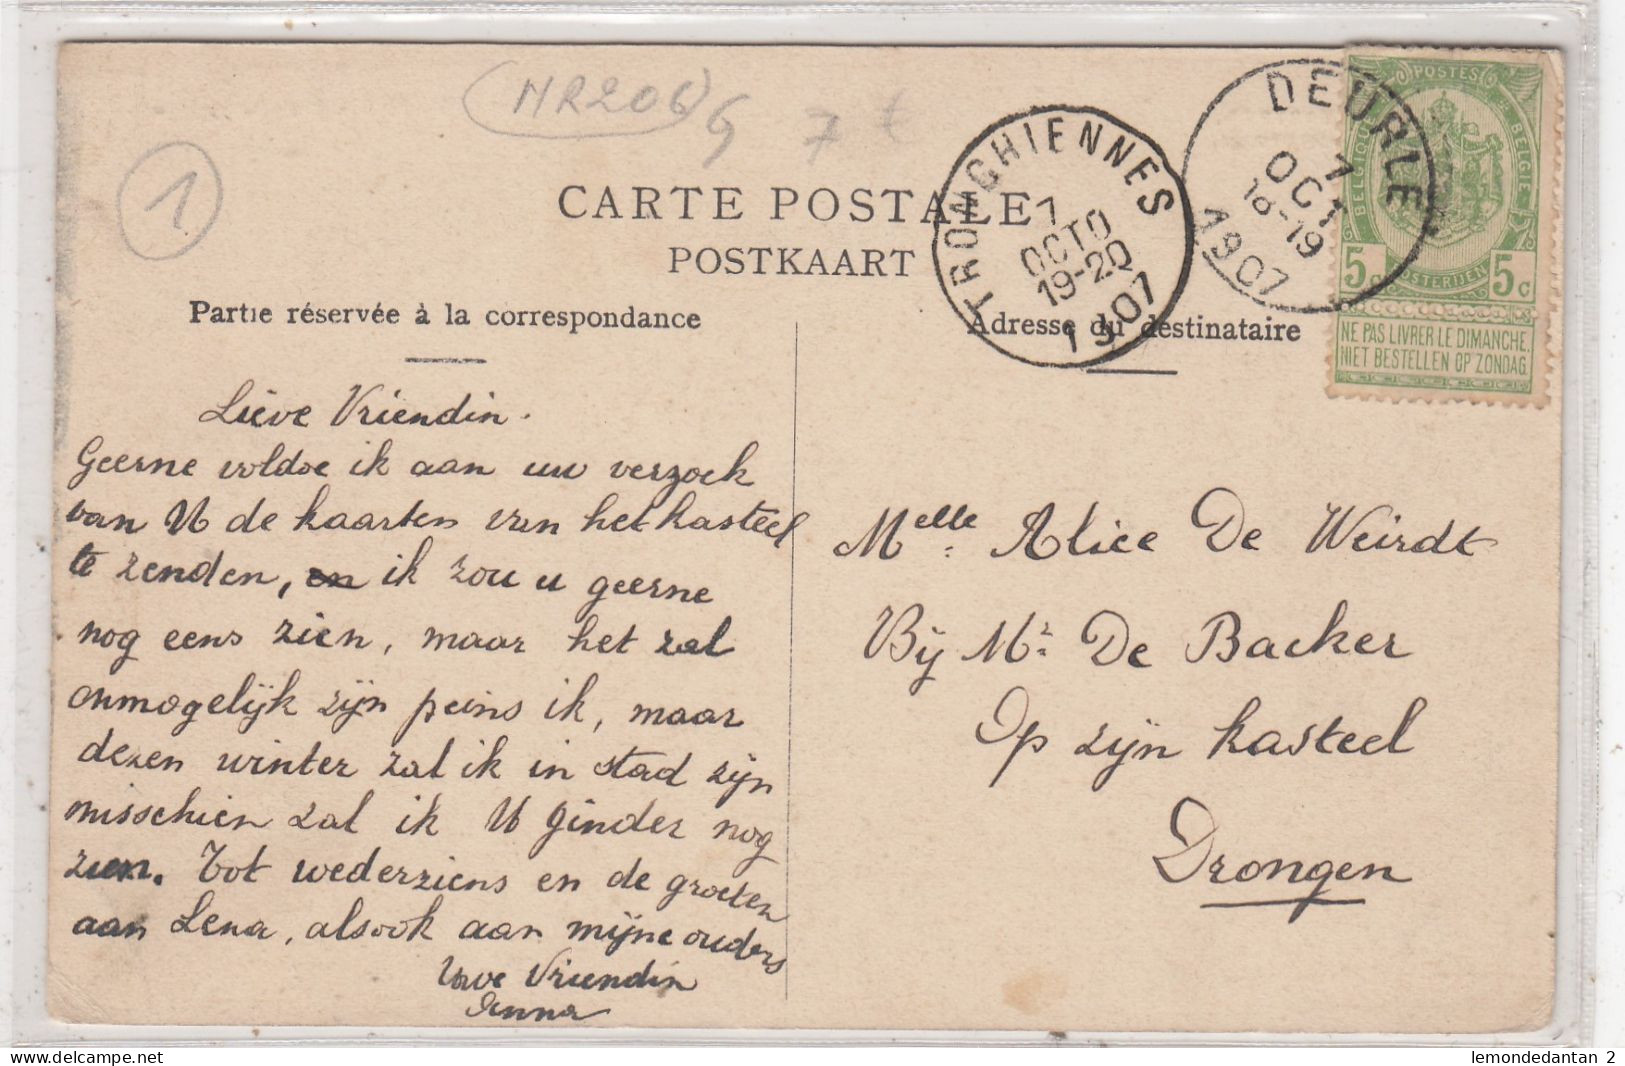 (NR206)
5
7
1
CARTE POSTALE
POSTKAART
Partie réservée à la correspondance
Adresse du destinataire
TRONCHIENNES
7
OCTO
19-20
1907
DEURLE
7
OCT
18-19
1907
POSTES
BELGIQUE
BELGIE
POSTERIJEN
5 c
5 c
NE PAS LIVRER LE DIMANCHE.
NIET BESTELLEN OP ZONDAG.
Lieve Vriendin.
Geerne voldoe ik aan uw verzoek
van U de kaarten van het kasteel
te zenden, en ik zou u geerne
nog eens zien, maar het zal
onmogelijk zijn peins ik, maar
dezen winter zal ik in stad zijn
misschien zal ik U ginder nog
zien. Tot wederziens en de groeten
aan Lena, alsook aan mijne ouders
Uwe Vriendin
Anna
Melle: Alice De Weirdt
Bij Mr: De Backer
Op zijn kasteel
Drongen
lemondedantan 2